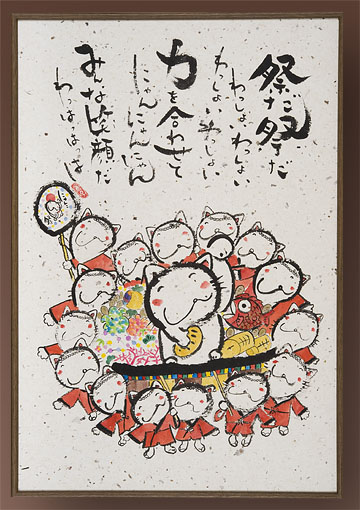 祭だ祭だ
わっしょいわっしょい
わっしょいわっしょい
力を合わせて
にゃんにゃんにゃん
みんな笑顔だ
わっはっはっは